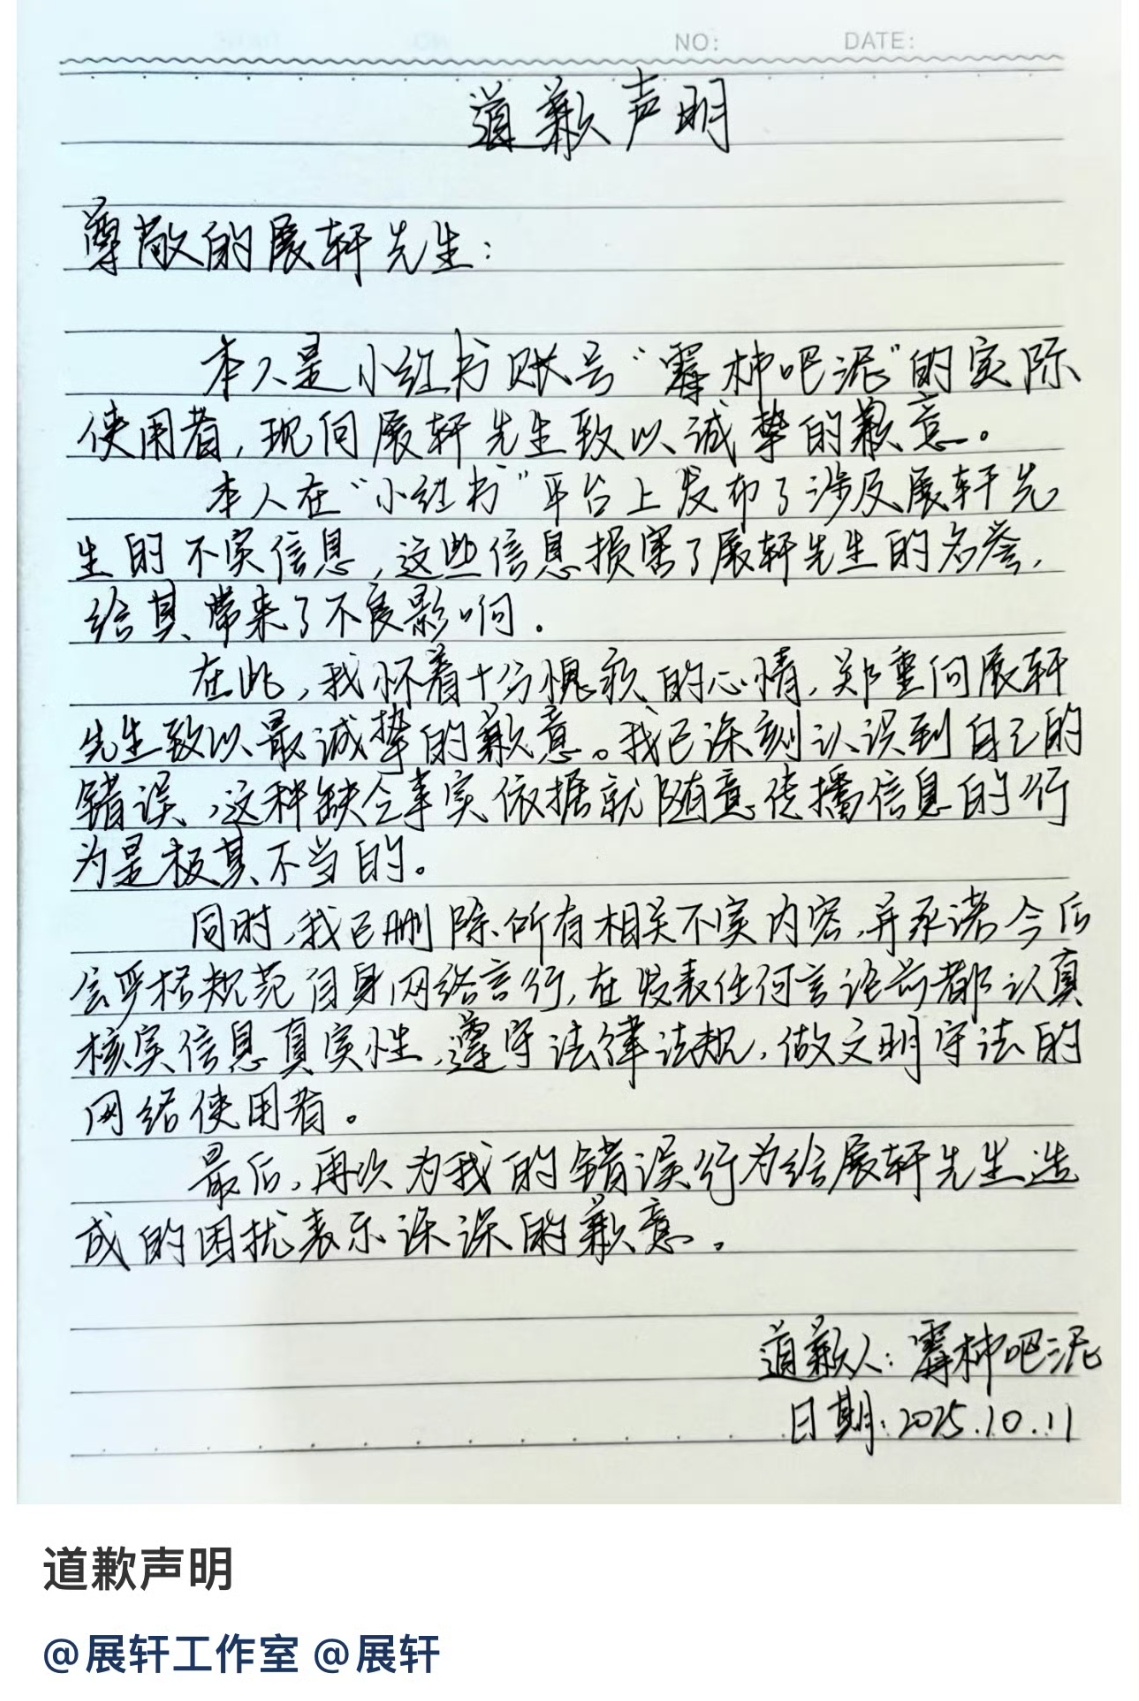 NO:
DATE:
道歉声明
尊敬的展轩先生：
本人是小红书账号“霉柿吧泥”的实际
使用者，现向展轩先生致以诚挚的歉意。
本人在“小红书”平台上发布了涉及展轩先
生的不实信息，这些信息损害了展轩先生的名誉，
给其带来了不良影响.
在此，我怀着十分愧疚的心情，郑重向展轩
先生致以最诚挚的歉意。我已深刻认识到自己的
错误，这种缺乏事实依据就随意传播信息的行
为是极其不当的。
同时，我已删除所有相关不实内容，并承诺今后
会严格规范自身网络言行，在发表任何言论前都认真
核实信息真实性，遵守法律法规，做文明守法的
网络使用者。
最后，再次为我的错误行为给展轩先生造
成的困扰表示深深的歉意。
道歉人：霉柿吧泥
日期：2025.10.11
道歉声明
@展轩工作室 @展轩